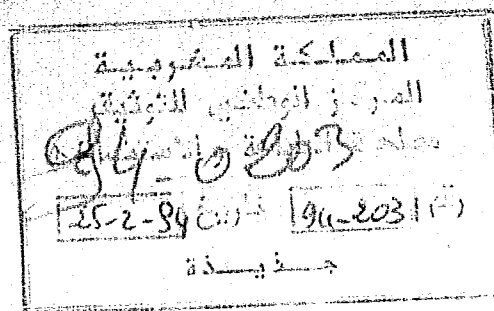 المملكة المغربية
المركز الوطني للتوثيق
94-0203
رقم 94-203 تاريخ 25-2-94
جـذيـــذة